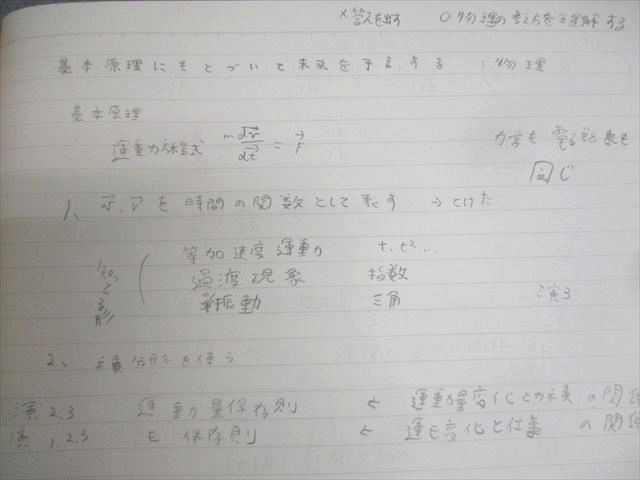 ×答えを出す ○物理の考え方を理解する
基本原理にもとづいて未来を予言する :物理
基本原理
運動方程式 m dv/dt = F
力学も電磁気も
同じ
1、r, v を時間の関数として表す → とけた
等加速度運動 t, t²…
過渡現象 指数
単振動 三角 演3
2、積分形を使う
演2.3 運動量保存則 ← 運動量変化と力積の関係
演1.2.3 E保存則 ← 運E変化と仕事の関係